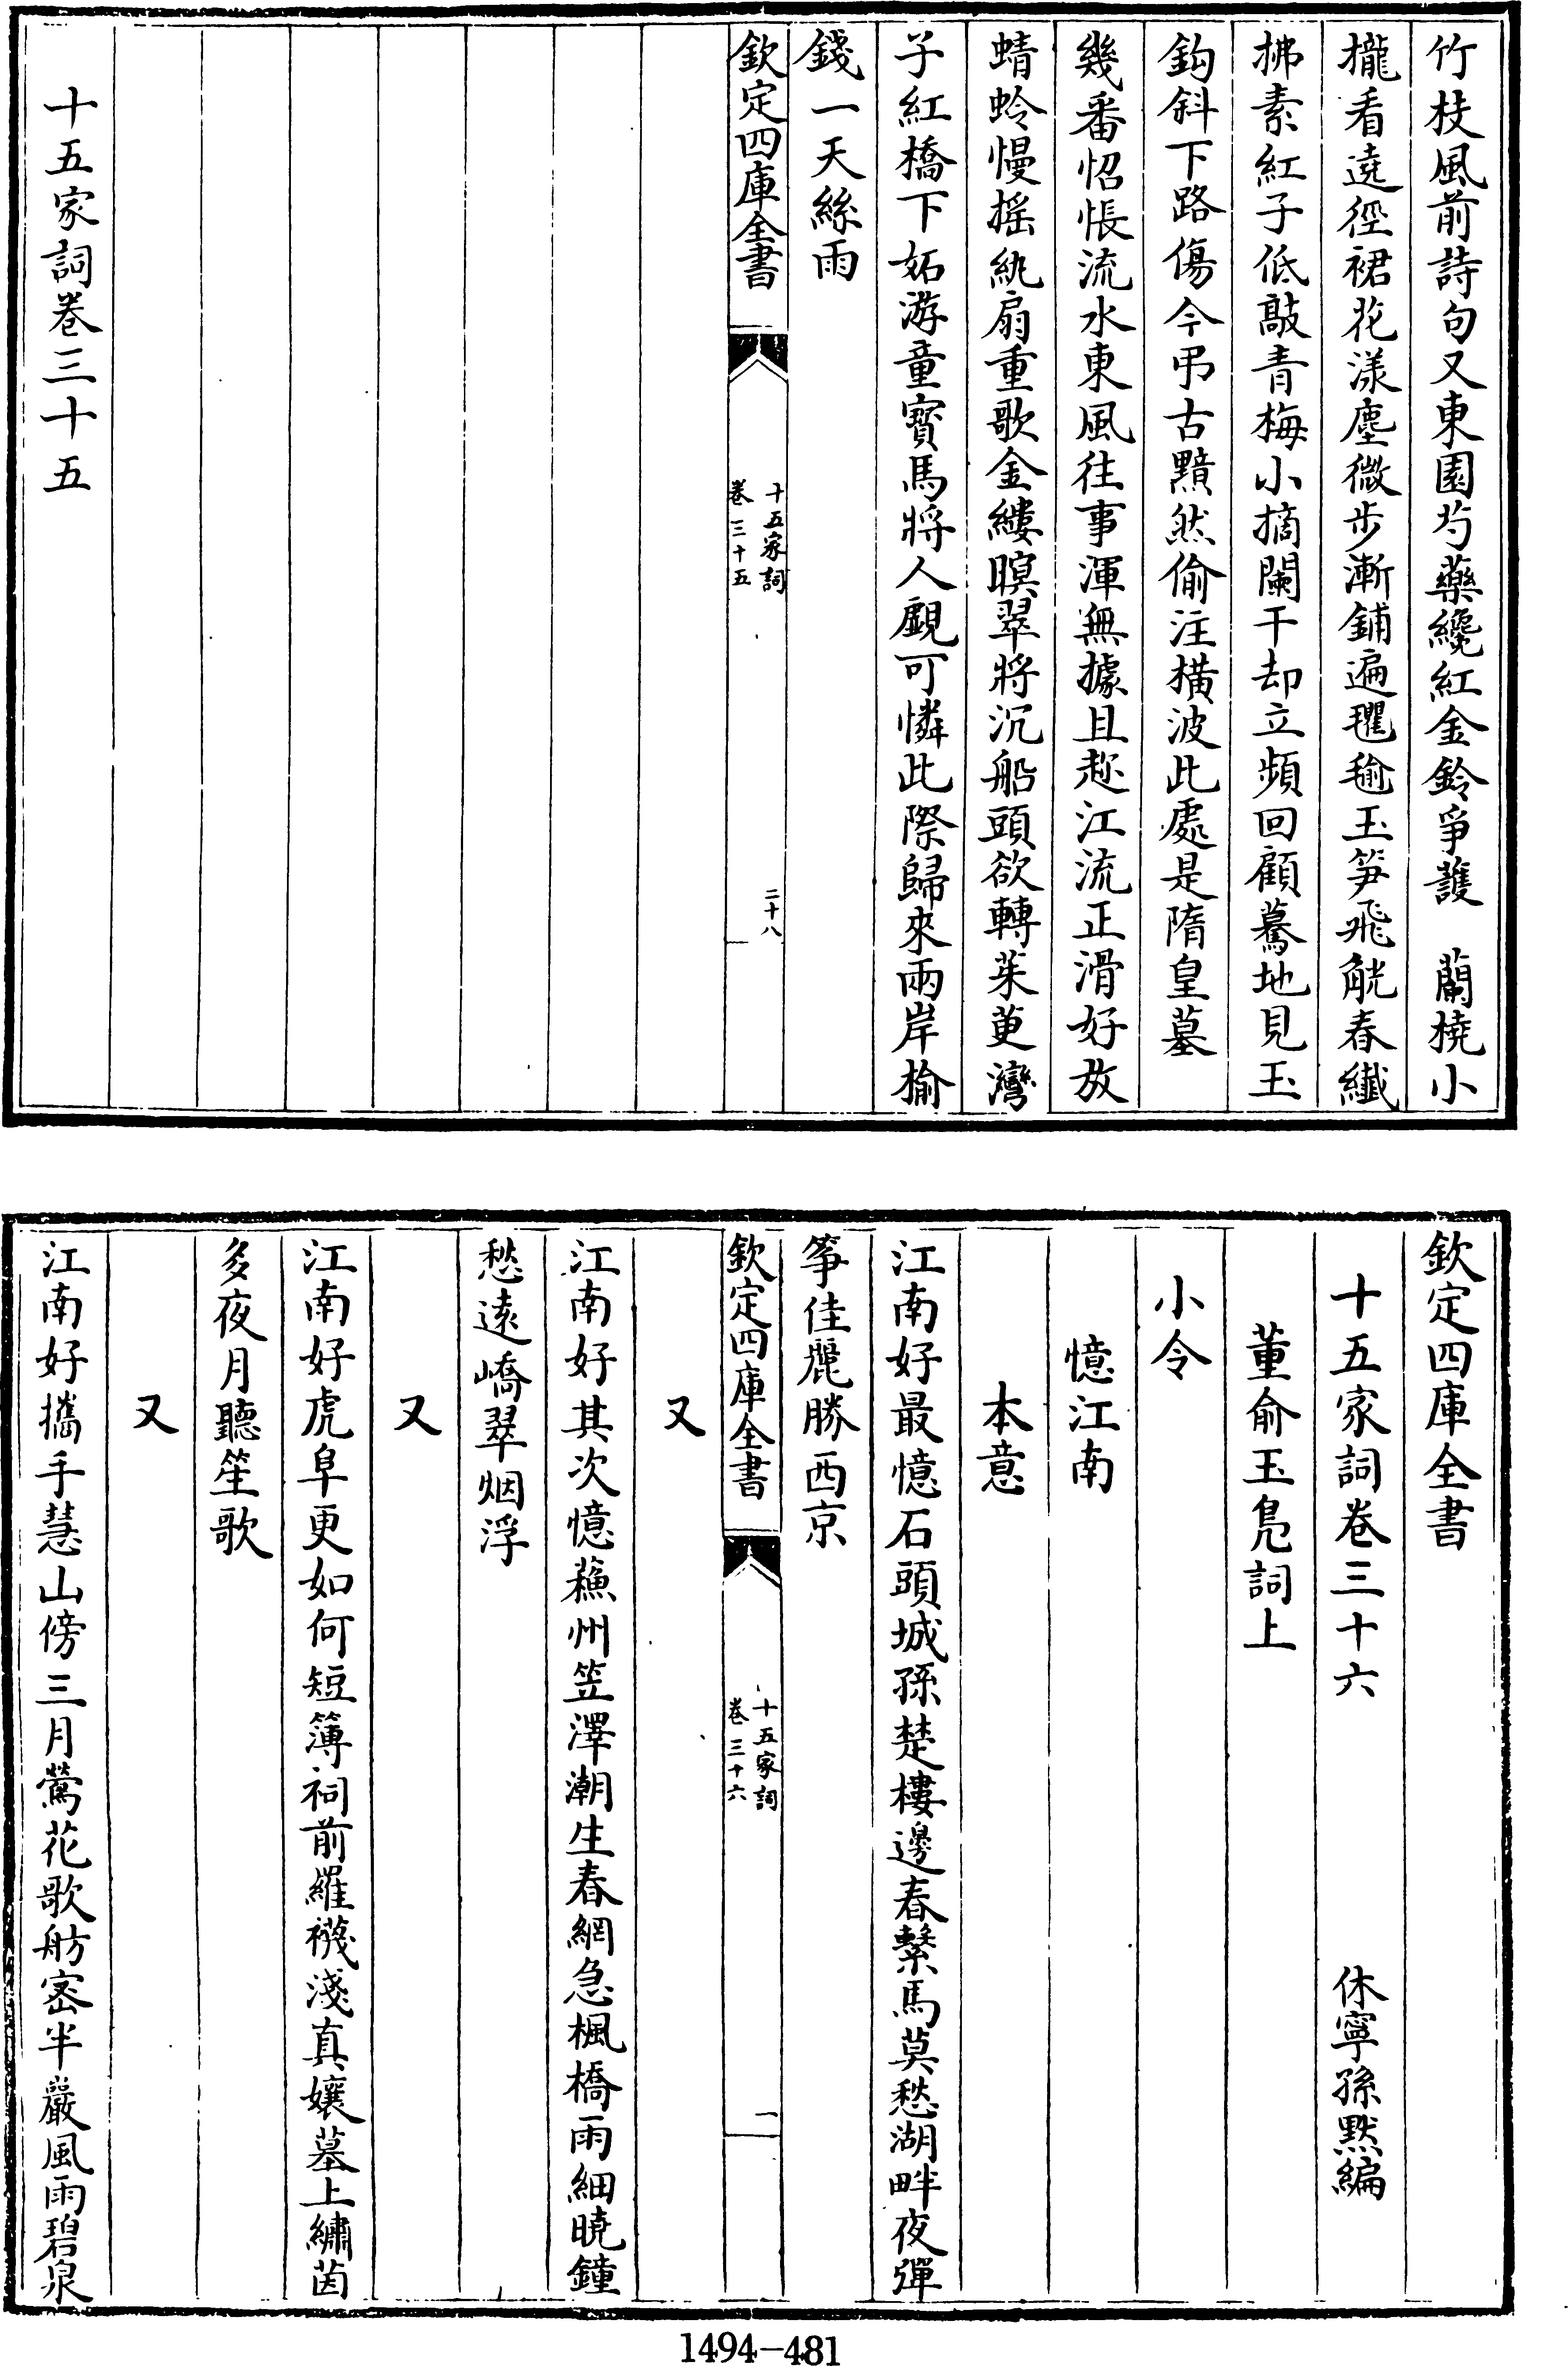 竹枝風前詩句又東園芍藥纔紅金鈴爭護　蘭橈小
攏看遶徑裙花漾塵微步漸鋪遍氍毹玉笋飛觥春纖
拂素紅子低敲青梅小摘闌干却立頻回顧驀地見玉
鈎斜下路傷今弔古黯然偷注橫波此處是隋皇墓
幾番怊悵流水東風往事渾無據且趂江流正滑好放
蜻蛉慢揺紈扇重歌金縷暝翠將沉船頭欲轉茱萸灣
子紅橋下妬游童寶馬將人覷可憐此際歸來兩岸榆
錢一天絲雨
欽定四庫全書
十五家詞
卷三十五
二十八
十五家詞卷三十五
欽定四庫全書
十五家詞卷三十六　休寧孫黙編
董俞玉鳬詞上
小令
憶江南
本意
江南好最憶石頭城孫楚樓邊春繫馬莫愁湖畔夜彈
筝佳麗勝西京
欽定四庫全書
十五家詞
卷三十六
一
又
江南好其次憶蘓州笠澤潮生春網急楓橋雨細曉鐘
愁遠嶠翠烟浮
又
江南好虎阜更如何短簿祠前羅襪淺真孃墓上繡茵
多夜月聽笙歌
又
江南好攜手慧山傍三月鶯花歌舫宻半巖風雨碧泉
1494-481